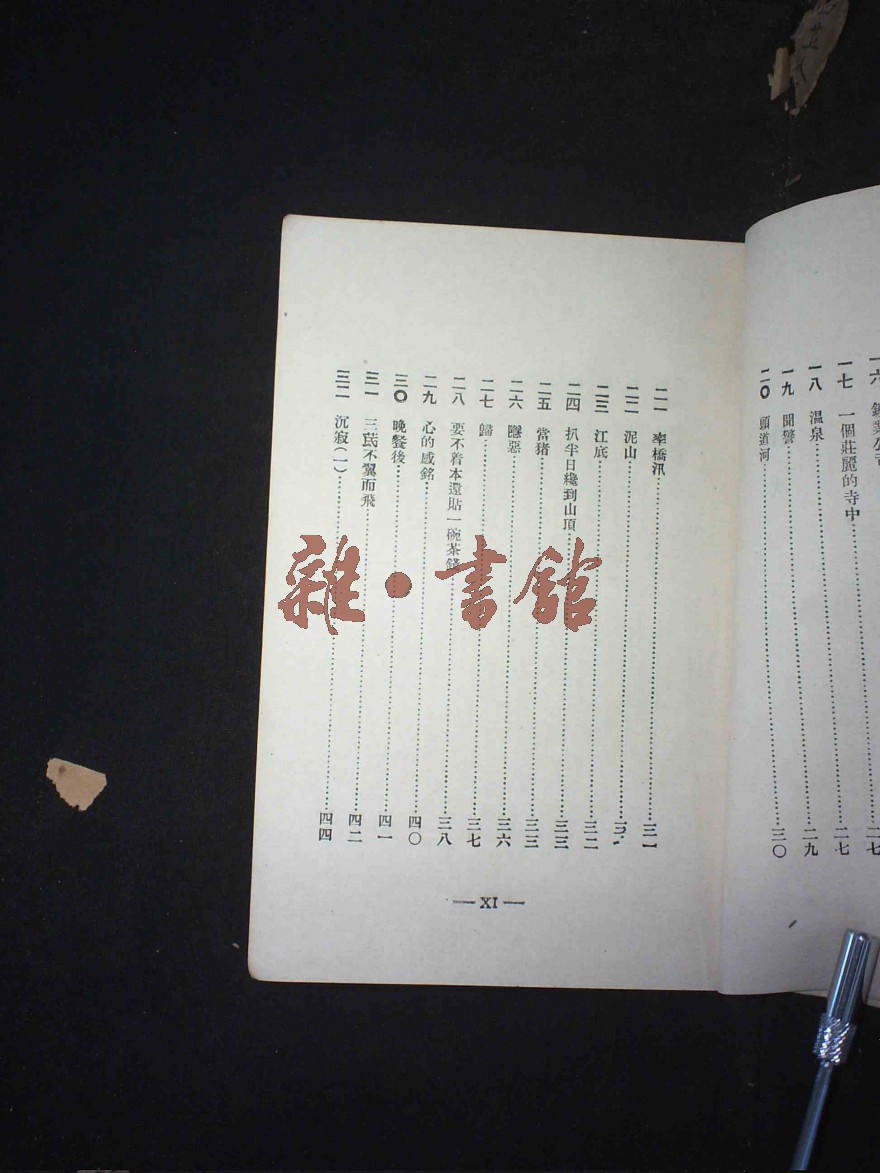 一七 一個莊麗的寺中 二七
一八 溫泉 二九
一九 聞警
二〇 頭道河 三〇
二一 率橋汛 三一
二二 泥山
二三 江底 三二
二四 扒半日纔到山頂 三三
二五 當猪 三三
二六 隱惡 三六
二七 歸 三七
二八 要不着本還貼一碗茶錢 三八
二九 心的感銘 四〇
三〇 晚餐後 四一
三一 三民不翼而飛 四二
三二 沉寂(一) 四四
— XI —
雜·書館